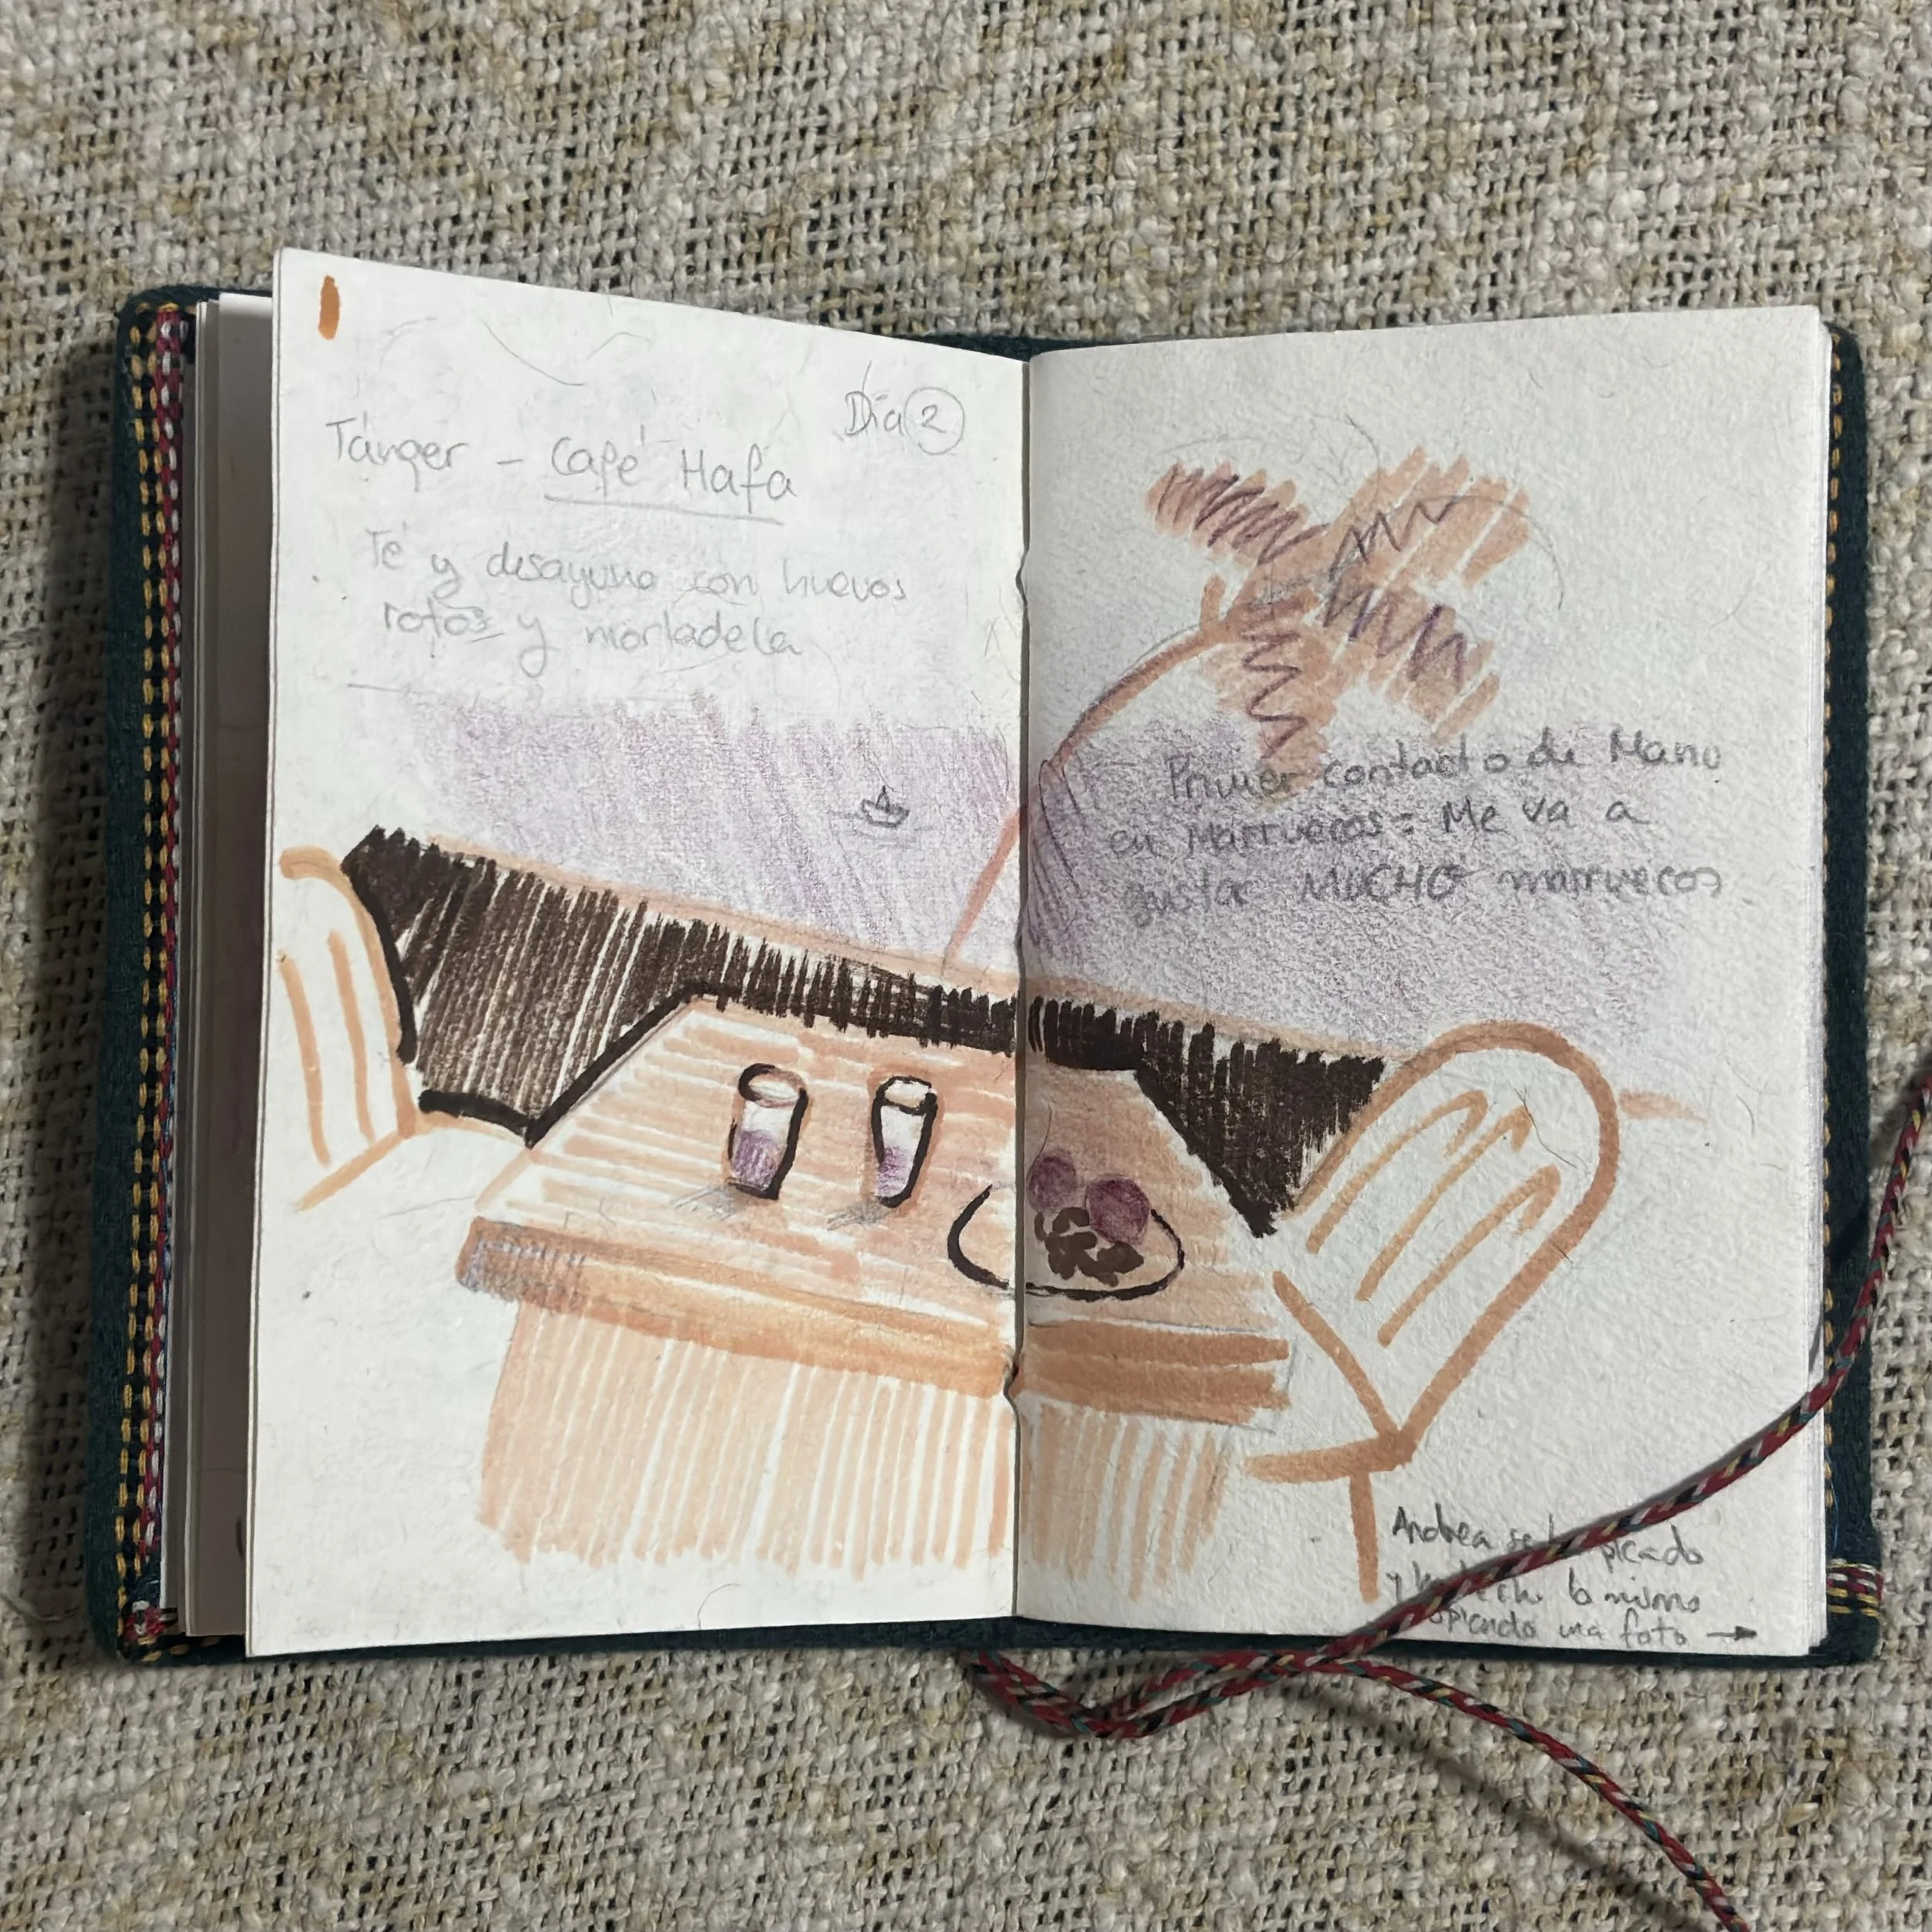 Día 2
Tánger - Café Hafa
Té y desayuno con huevos
rotos y mortadela
Primer contacto de Manu
en Marruecos: Me va a
gustar MUCHO marruecos
Andrea se picado
y lo mismo
una foto →